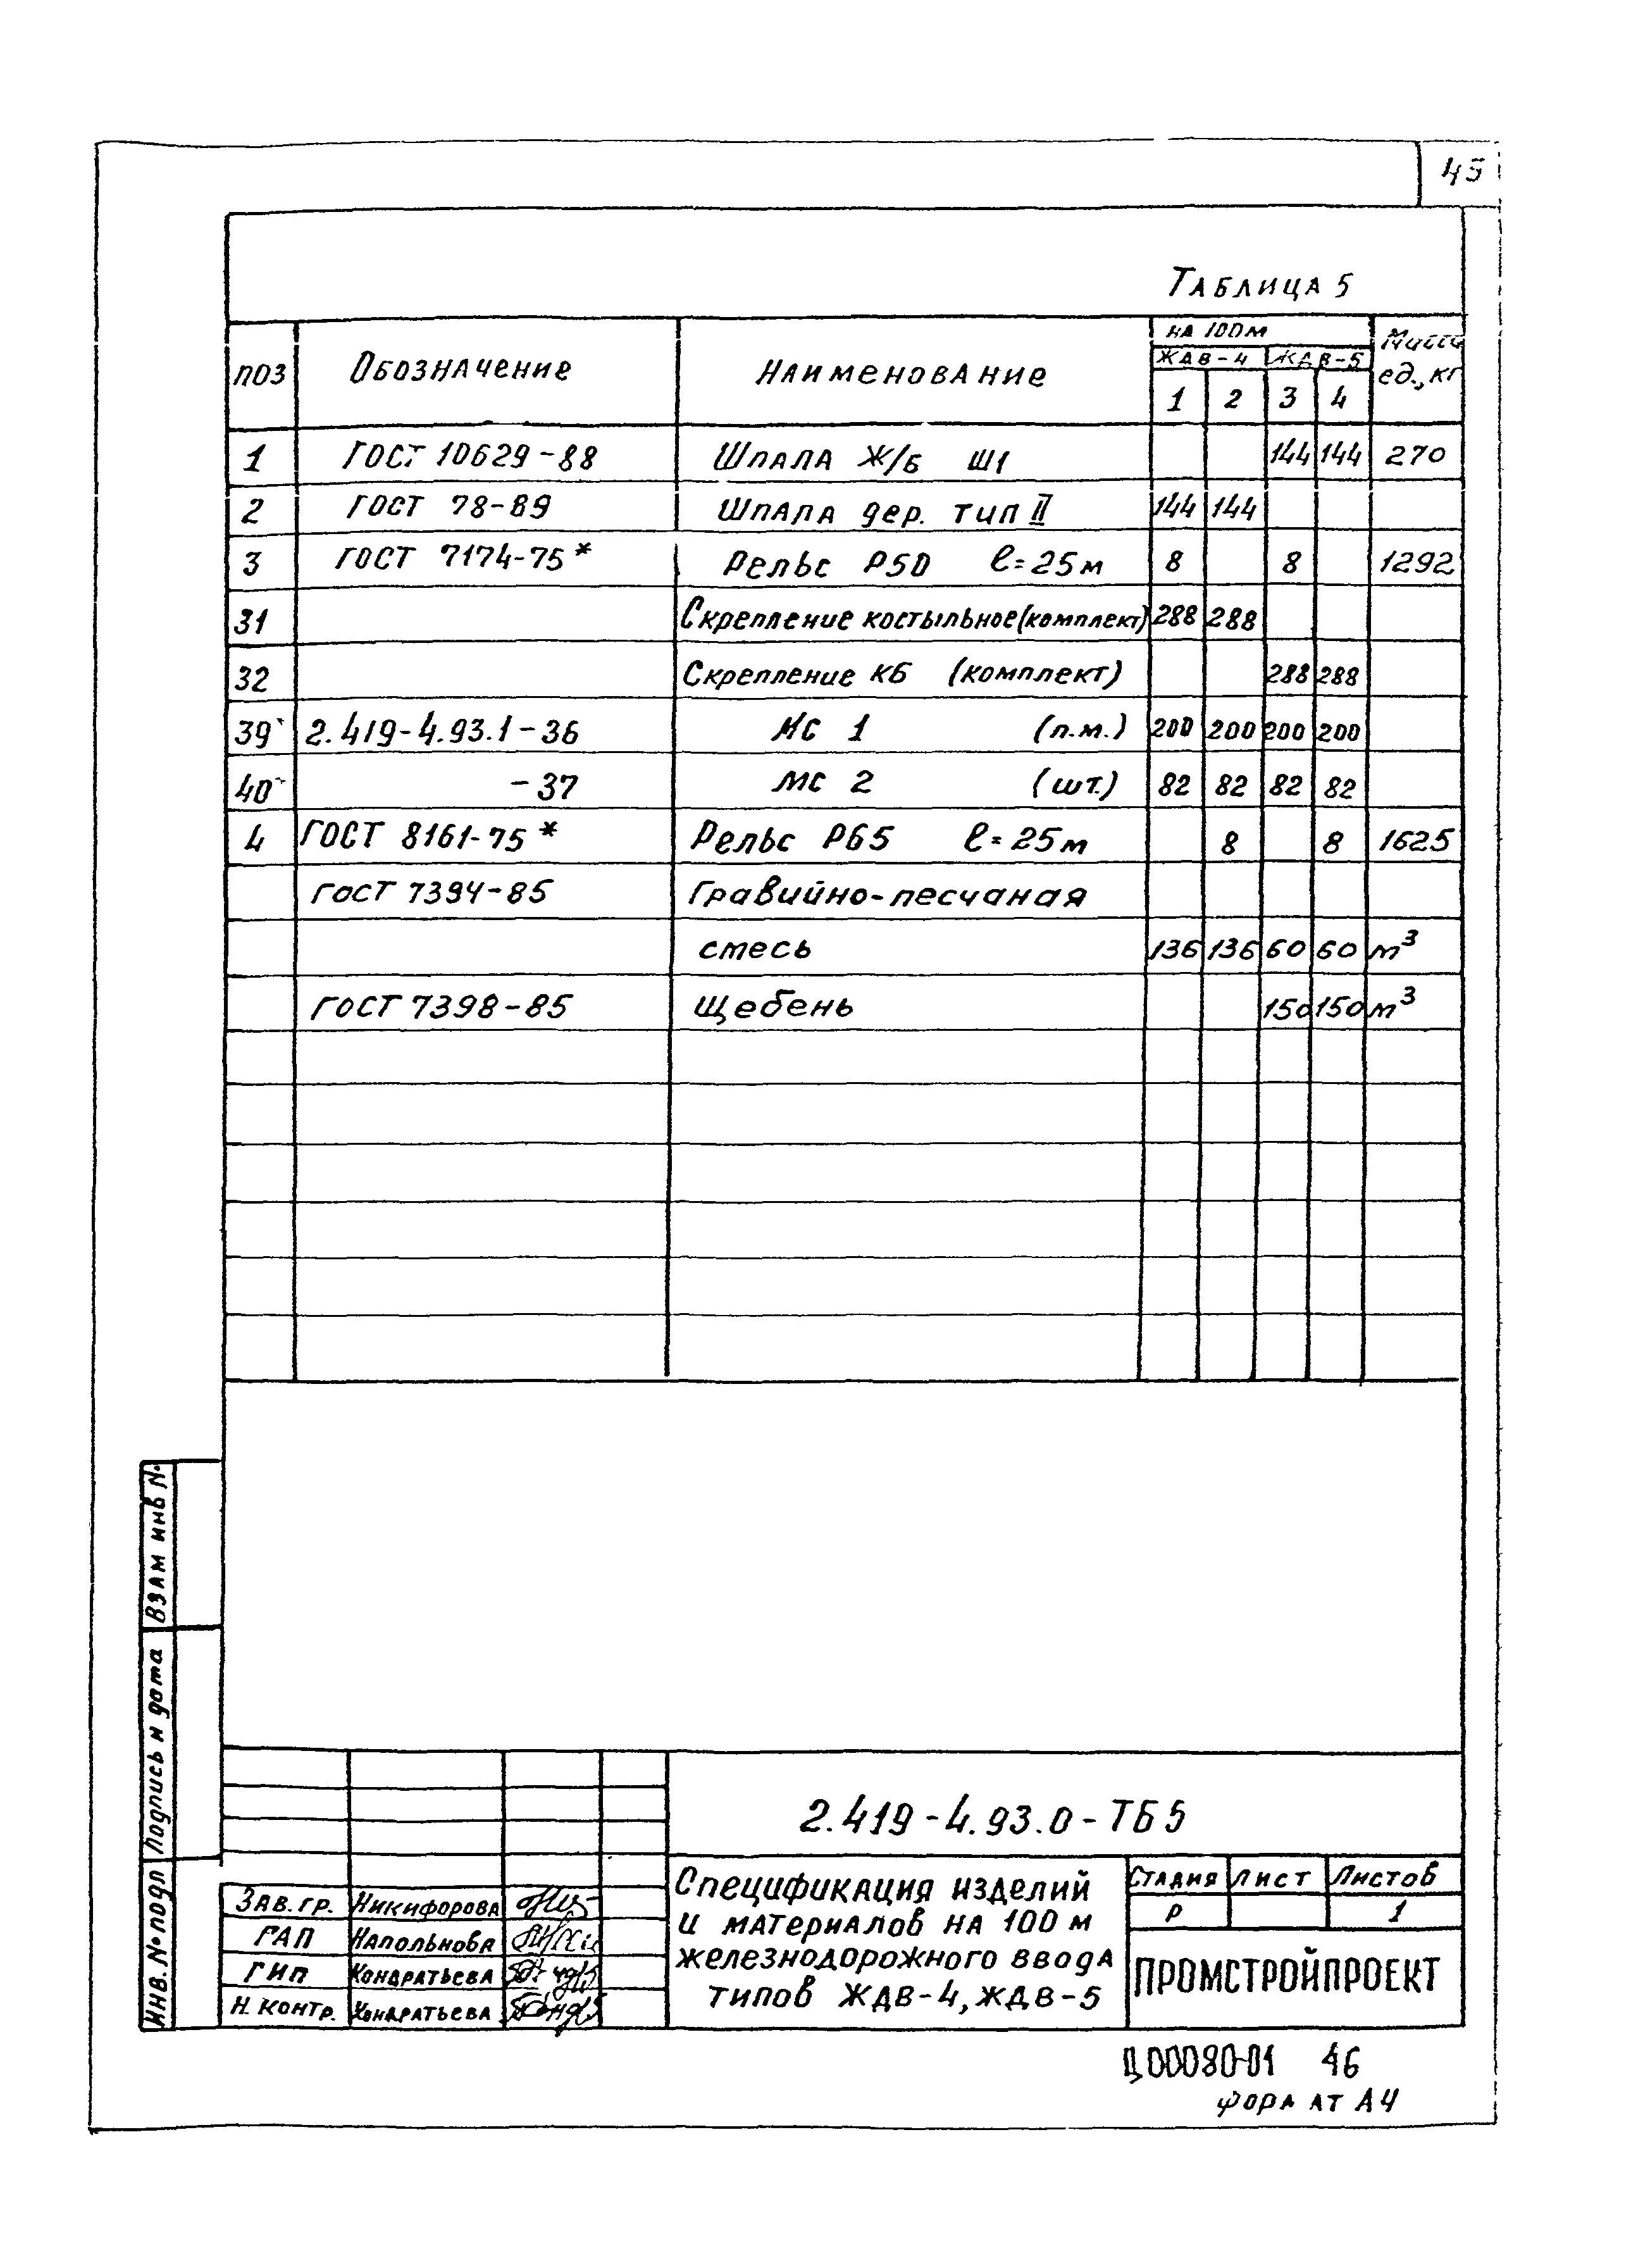 45
Таблица 5
ПОЗ Обозначение Наименование на 100м Масса ед., кг
ЖДВ-4 ЖДВ-5
1 2 3 4
1 ГОСТ 10629-88 Шпала Ж/Б Ш1 144 144 270
2 ГОСТ 78-89 Шпала дер. тип II 144 144
3 ГОСТ 7174-75* Рельс Р50 ℓ=25м 8 8 1292
31 Скрепление костыльное(комплект) 288 288
32 Скрепление КБ (комплект) 288 288
39 2.419-4.93.1-36 МС 1 (п.м.) 200 200 200 200
40 -37 МС 2 (шт.) 82 82 82 82
4 ГОСТ 8161-75* Рельс Р65 ℓ=25м 8 8 1625
ГОСТ 7394-85 Гравийно-песчаная
смесь 136 136 60 60 м³
ГОСТ 7398-85 Щебень 150 150 м³
Взам инв N.
Подпись и дата
Инв. N° подл
2.419-4.93.0-ТБ5
Зав. гр. Никифорова
ГАП Напольнова
ГИП Кондратьева
Н. контр. Кондратьева
Спецификация изделий
и материалов на 100 м
железнодорожного ввода
типов ЖДВ-4, ЖДВ-5
Стадия Лист Листов
Р 1
ПРОМСТРОЙПРОЕКТ
Ц00080-01 46
ФОРА АТ А4